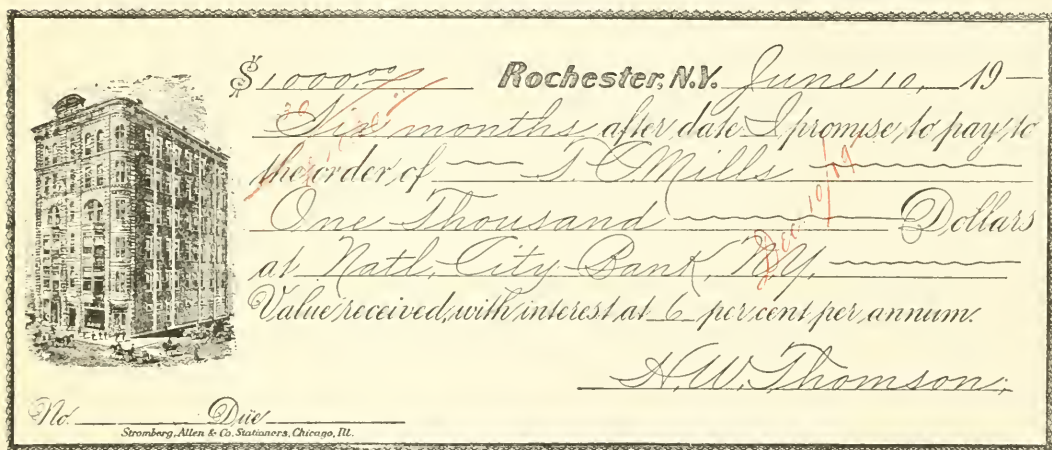 $1000.00 Rochester, N.Y. June 10, 19—
Six months after date I promise to pay to
the order of — T. C. Mills —
One Thousand — Dollars
at Natl. City Bank, N.Y. —
Value received, with interest at 6 per cent per annum.
H. W. Thomson.
No. Due
Stromberg, Allen & Co. Stationers, Chicago, Ill.
Dec 10/19